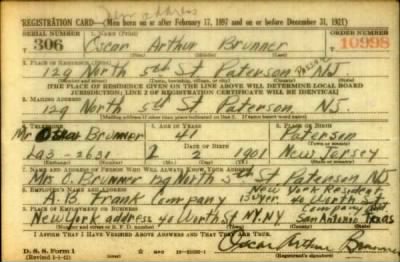 New address
REGISTRATION CARD—(Men born on or after February 17, 1897 and on or before December 31, 1921)
SERIAL NUMBER 1. NAME (Print) ORDER NUMBER
T 306 Oscar Arthur Brunner 10998
2. PLACE OF RESIDENCE (Print)
129 North 5th St Paterson Passaic NJ
(Number and street) (Town, township, village, or city) (County) (State)
[THE PLACE OF RESIDENCE GIVEN ON THE LINE ABOVE WILL DETERMINE LOCAL BOARD
JURISDICTION; LINE 2 OF REGISTRATION CERTIFICATE WILL BE IDENTICAL]
3. MAILING ADDRESS
129 North 5th St Paterson, NJ.
(Mailing address if other than place indicated on line 2. If same insert word same)
4. TELEPHONE 5. AGE IN YEARS 6. PLACE OF BIRTH
Mr Oscar Brunner 41 Paterson
DATE OF BIRTH
La3-2631 2 2 1901 New Jersey
7. NAME AND ADDRESS OF PERSON WHO WILL ALWAYS KNOW YOUR ADDRESS
Mrs C. Brunner 129 North 5th St Paterson NJ
8. EMPLOYER'S NAME AND ADDRESS New York Resident
A. B. Frank Company 40 Worth St
9. PLACE OF EMPLOYMENT OR BUSINESS Company
New York address 40 Worth St NY. NY San Antonio Texas
I AFFIRM THAT I HAVE VERIFIED ABOVE ANSWERS AND THAT THEY ARE TRUE.
D. S. S. Form 1
(Revised 1-1-42)
Oscar Arthur Brunner
(Registrant's signature)